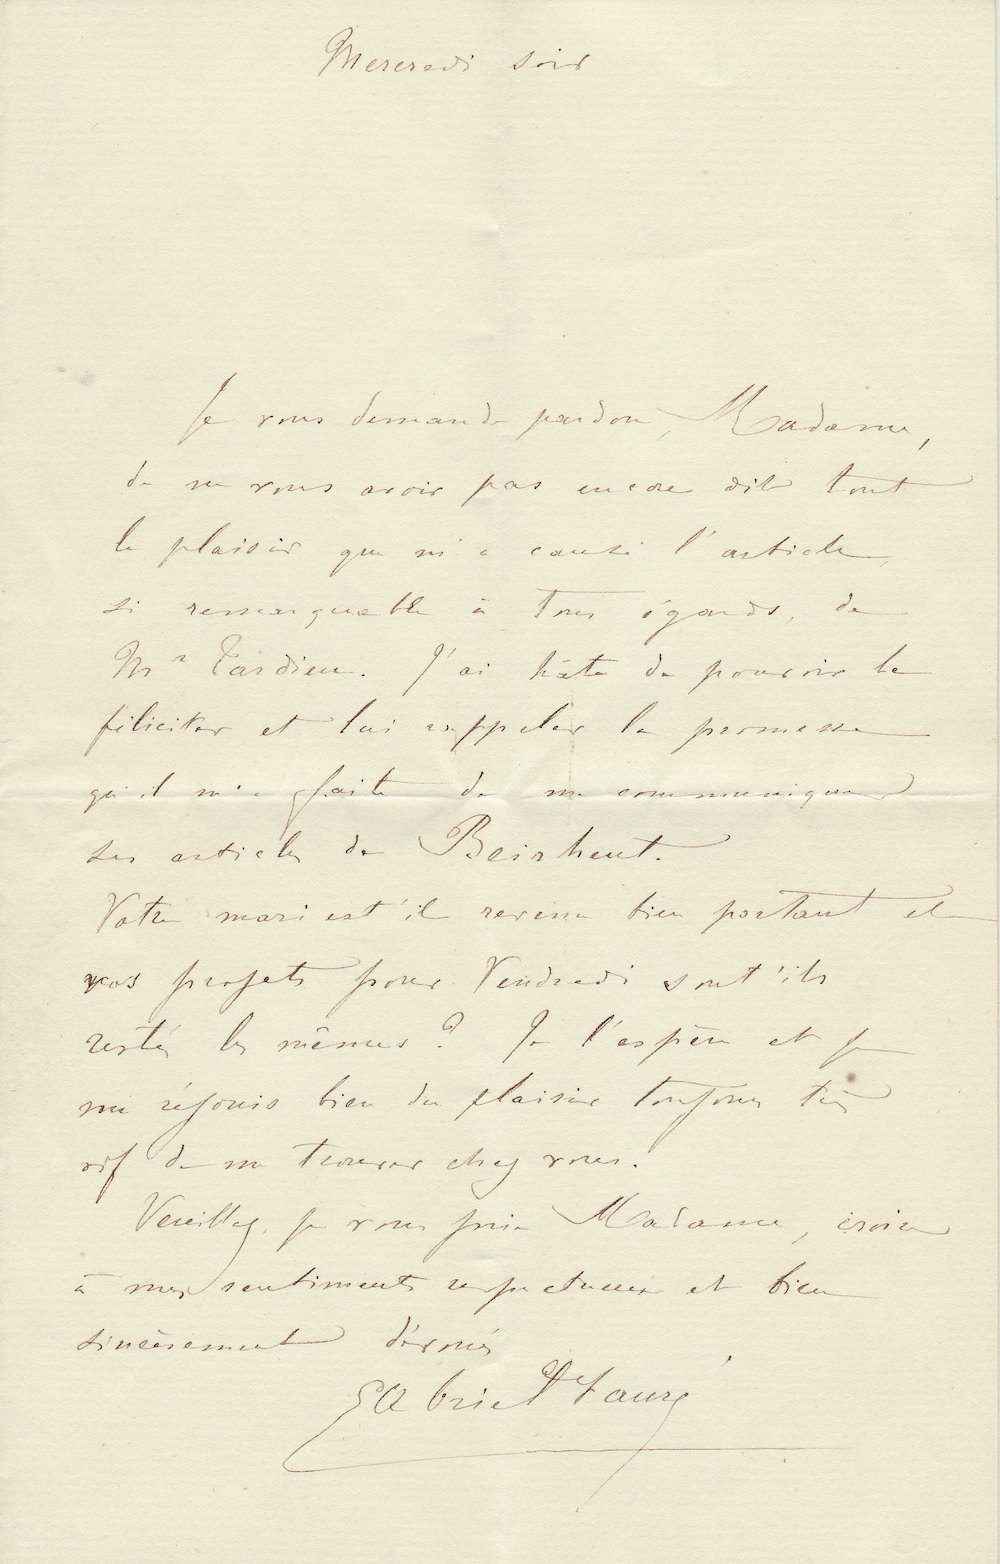 Mercredi soir
Je vous demande pardon, Madame,
de ne vous avoir pas encore dit tout
le plaisir que m'a causé l'article,
si remarquable à tous égards, de
Mr Tardieu. J'ai hâte de pouvoir le
féliciter et lui rappeler la promesse
qu'il m'a faite de me communiquer
ses articles de Beirheut.
Votre mari est'il revenu bien portant et
vos projets pour Vendredi sont'ils
restés les mêmes ? Je l'espère et je
me réjouis bien du plaisir toujours très
vif de me trouver chez vous.
Veuillez, je vous prie Madame, croire
à mes sentiments respectueux et bien
sincèrement dévoués
Gabriel Fauré